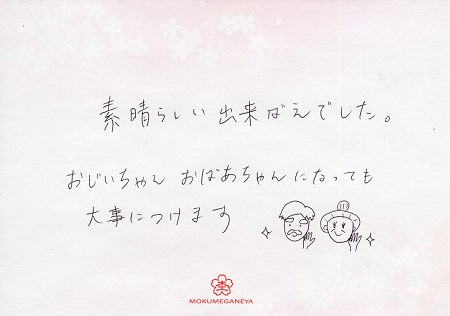 素晴らしい出来ばえでした。
おじいちゃん おばあちゃんになっても
大事につけます
MOKUMEGANEYA